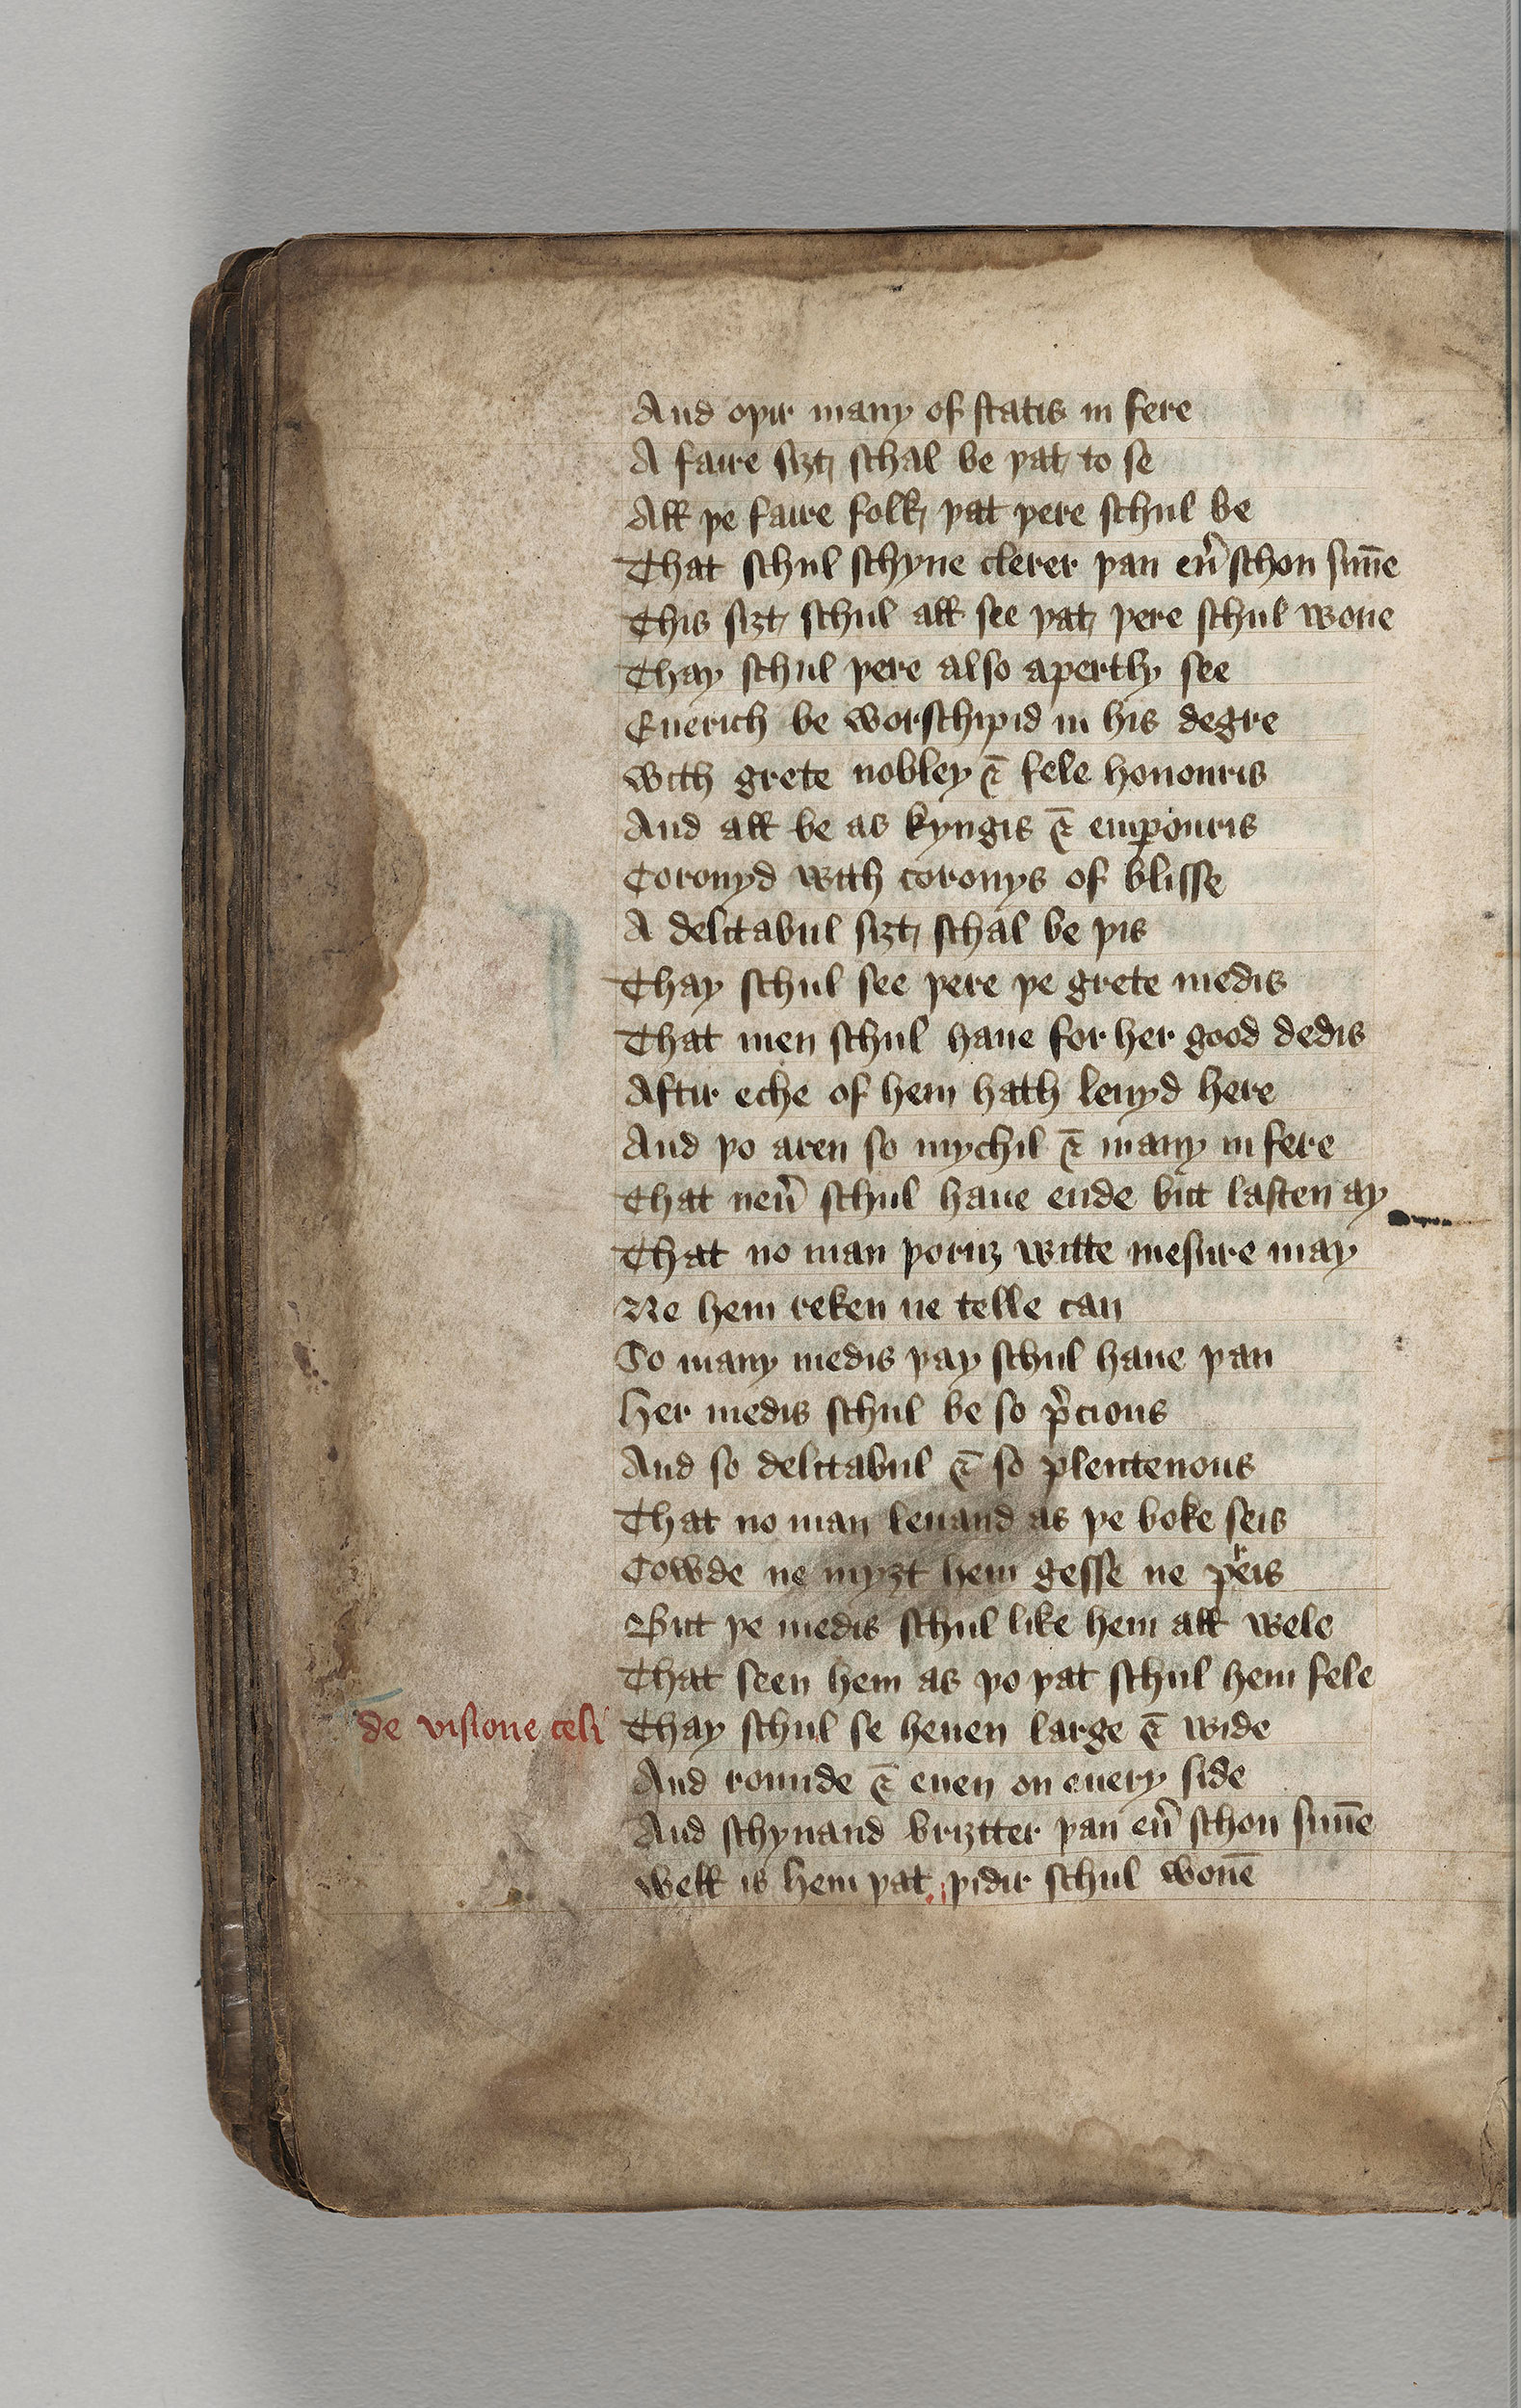 And oþir many of statis in fere
A faire siȝt schal be þat to se
All þe faire folk þat þere schul be
That schul schyne clerer þan eũ schon sun̄e
This siȝt schul all see þat þere schul wone
Thay schul þere also apertly see
Euerich be worschipid in his degre
With grete nobley ⁊ fele honouris
And all be as kyngis ⁊ emꝑouris
Coronyd with coronys of blisse
A delitabul siȝt schal be þis
Thay schul see þere þe grete medis
That men schul haue for her good dedis
Aftir eche of hem hath leuyd here
And þo aren so mychil ⁊ many in fere
That neũ schul haue ende but lasten ay
That no man þoruȝ witte mesure may
Ne hem reken ne telle can
So many medis þay schul haue þan
Her medis schul be so p̃cious
And so delitabul ⁊ so plenteuous
That no man leuand as þe boke seis
Cowde ne myȝt hem gesse ne preis
But þe medis schul like hem all wele
That seen hem as þo þat schul hem fele
de visione celi Thay schul se heuen large ⁊ wide
And rounde ⁊ euen on euery side
And schynand briȝtter þan eũ schon sun̄e
Well is hem þat þidir schul wonē